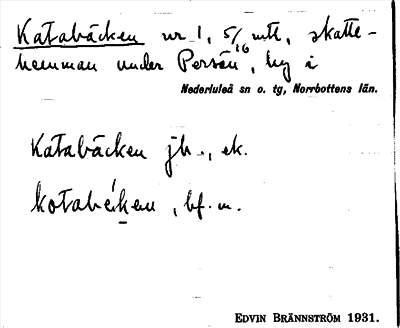 Katabäcken nr 1, 5/16 mtl, skatte-
hemman under Persön, by i
Nederluleå sn o. tg, Norrbottens län.
Katabäcken jb., ek.
bf. m.
EDVIN BRÄNNSTRÖM 1931.